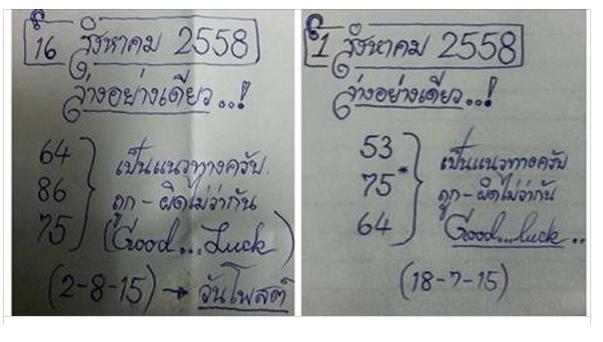 16 สิงหาคม 2558
ล่างอย่างเดียว..!
64
86
75
เป็นแนวทางครับ
ถูก-ผิดไม่ว่ากัน
(Good...Luck)
(2-8-15) → วันโพสต์
1 สิงหาคม 2558
ล่างอย่างเดียว..!
53
75
64
เป็นแนวทางครับ
ถูก-ผิดไม่ว่ากัน
Good...luck..
(18-7-15)